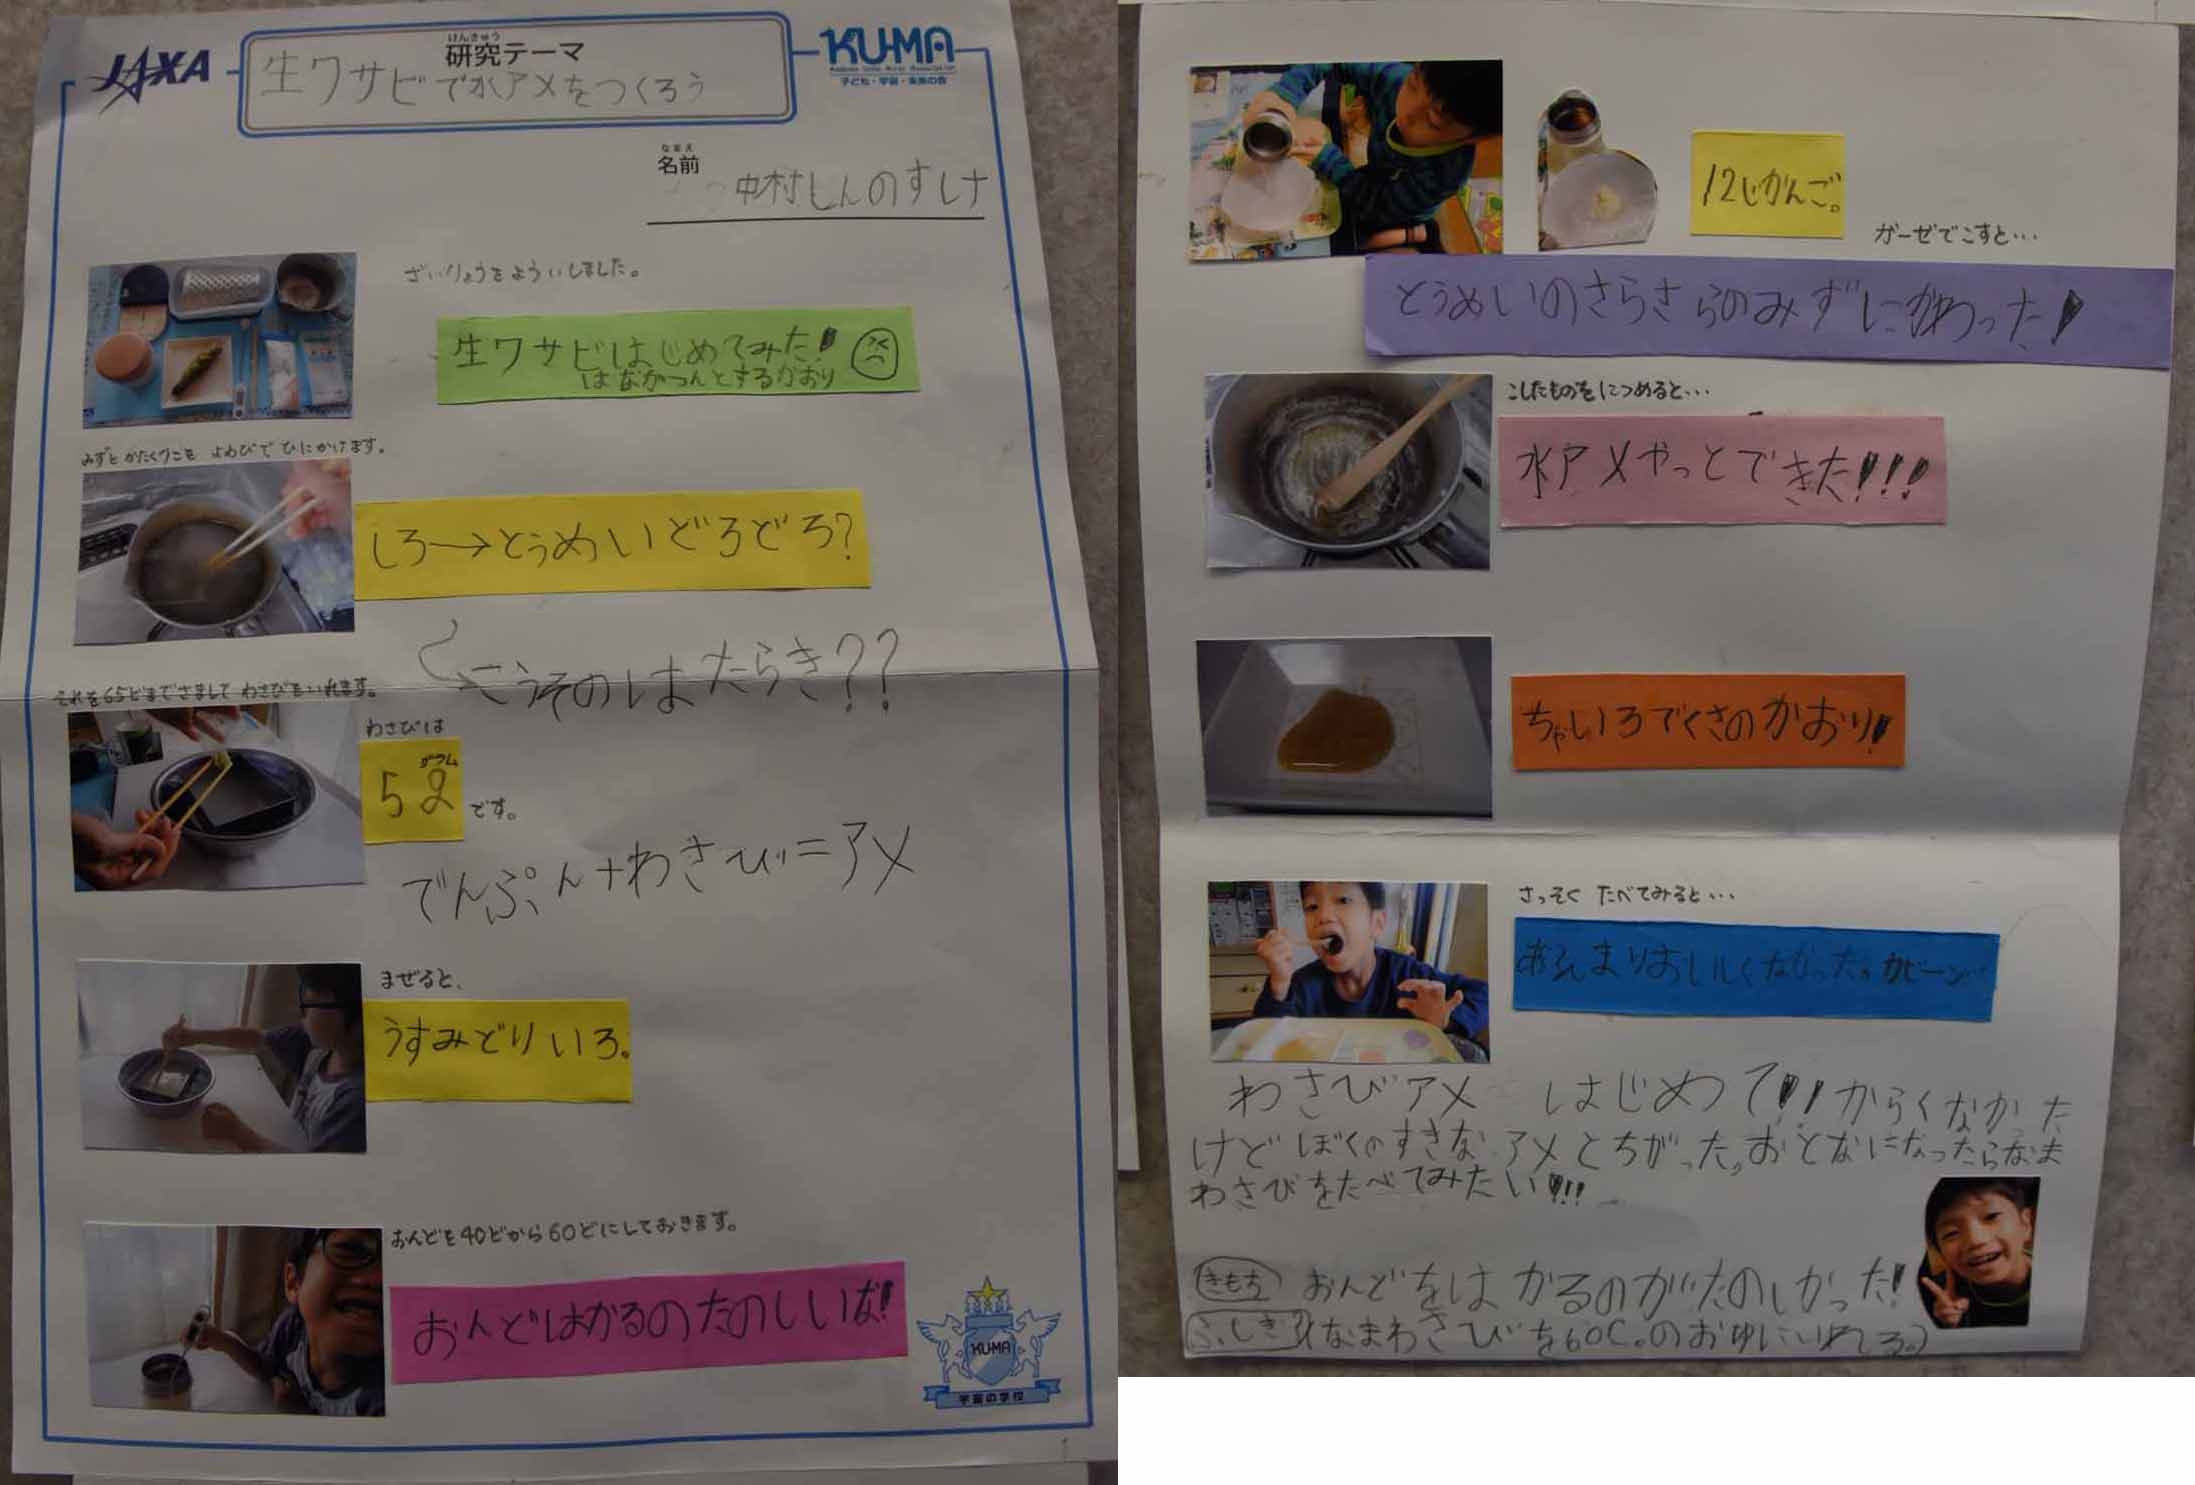 JAXA
けんきゅう
研究テーマ
KU-MA
子ども・宇宙・未来の会
生ワサビで水アメをつくろう
なまえ
名前
中村しんのすけ
ざいりょうをよういしました。
生ワサビはじめてみた!
はながつんとするかおり
みずとかたくりこを よわびで ひにかけます。
しろ→とうめいどろどろ?
こうそのはたらき??
それを65どまでさまして わさびをいれます。
わさびは
グラム
5g
です。
でんぷん+わさび=アメ
まぜると、
うすみどりいろ。
おんどを40どから60どにしておきます。
おんどはかるのたのしいな!
KUMA
宇宙の学校
12じかんご。
ガーゼでこすと…
とうめいのさらさらのみずにかわった!
こしたものをにつめると…
水アメやっとできた!!!
ちゃいろでくさのかおり!
さっそく たべてみると…
あんまりおいしくなかった。ガビーン
わさびアメ はじめて!!からくなかった
けど ぼくのすきな アメとちがった。おとなになったらなま
わさびをたべてみたい!!!
きもち おんどをはかるのがたのしかった!
ふしぎ (なまわさびを60C。のおゆにいれる。)